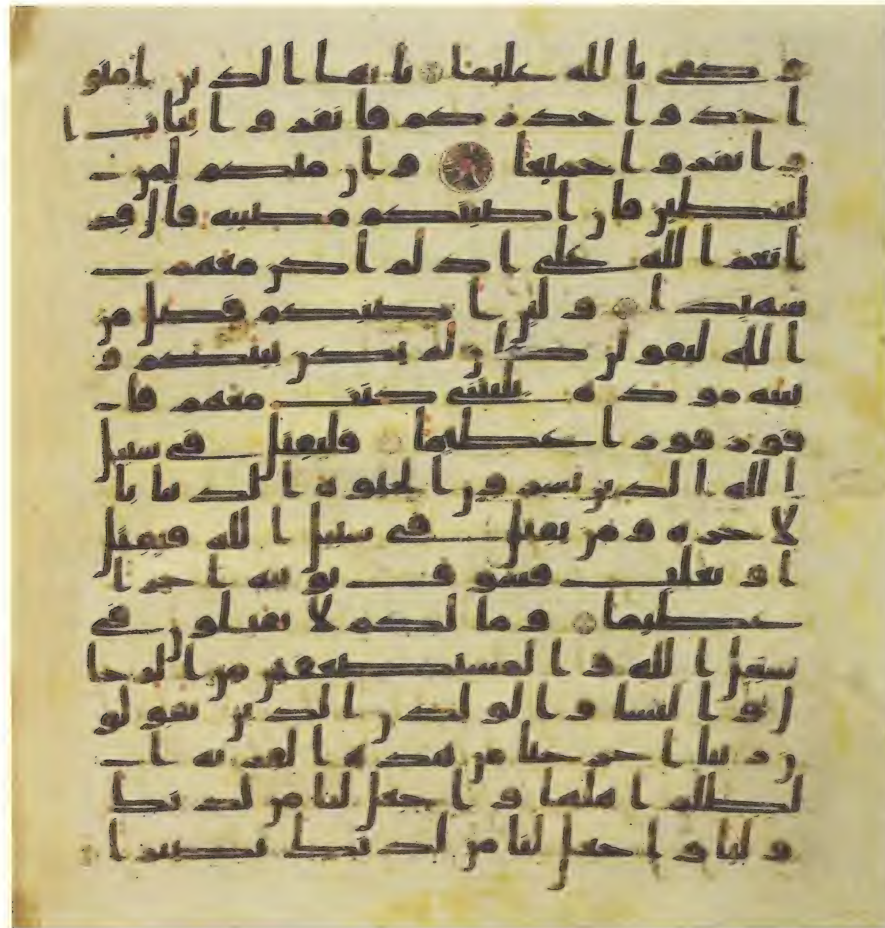 و كفى بالله عليما يايها الذين امنو
ا خذوا حذركم فانفروا ثبات ا
و انفروا جميعا و ان منكم لمن
ليبطين فان اصبتكم مصيبه قال قد
انعم الله على اذ لم اكن معهم
شهيدا و لين اصبكم فضل من
الله ليقولن كان لم يكن بينكم و
بينه موده يليتنى كنت معهم فا
فوز فوزا عظيما فليقتل فى سبيل
الله الذين يشرون الحيوه الدنيا با
لاخره و من يقتل فى سبيل الله فيقتل
او يغلب فسوف نوتيه اجرا
عظيما و ما لكم لا تقتلون فى
سبيل الله و المستضعفين من الرجا
ل و النسا و الولدن الذين يقولو
ن ربنا اخرجنا من هذه القريه ا
لظلم اهلها و اجعل لنا من لدنك
وليا و اجعل لنا من لدنك نصيرا